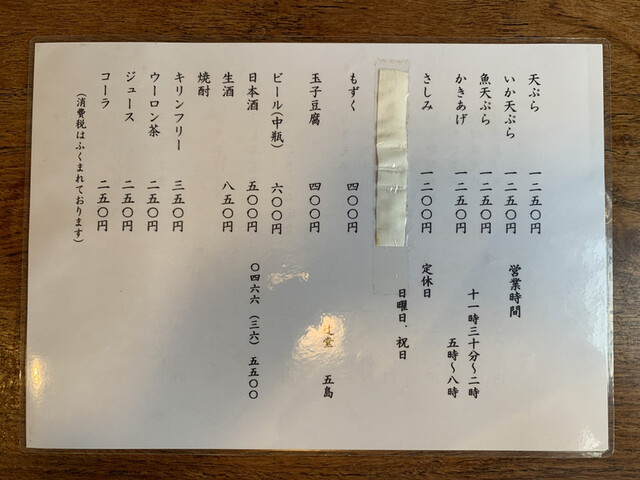 天ぷら 一二五〇円
いか天ぷら 一二五〇円
魚天ぷら 一二五〇円
かきあげ 一二五〇円
さしみ 一二〇〇円
もずく 四〇〇円
玉子豆腐 四〇〇円
ビール(中瓶) 六〇〇円
日本酒 五〇〇円
生酒 八五〇円
焼酎
キリンフリー 三五〇円
ウーロン茶 二五〇円
ジュース 二五〇円
コーラ 二五〇円
(消費税はふくまれております)
営業時間
十一時三十分〜二時
五時〜八時
定休日
日曜日、祝日
辻堂 五島
〇四六六(三六)五五〇〇